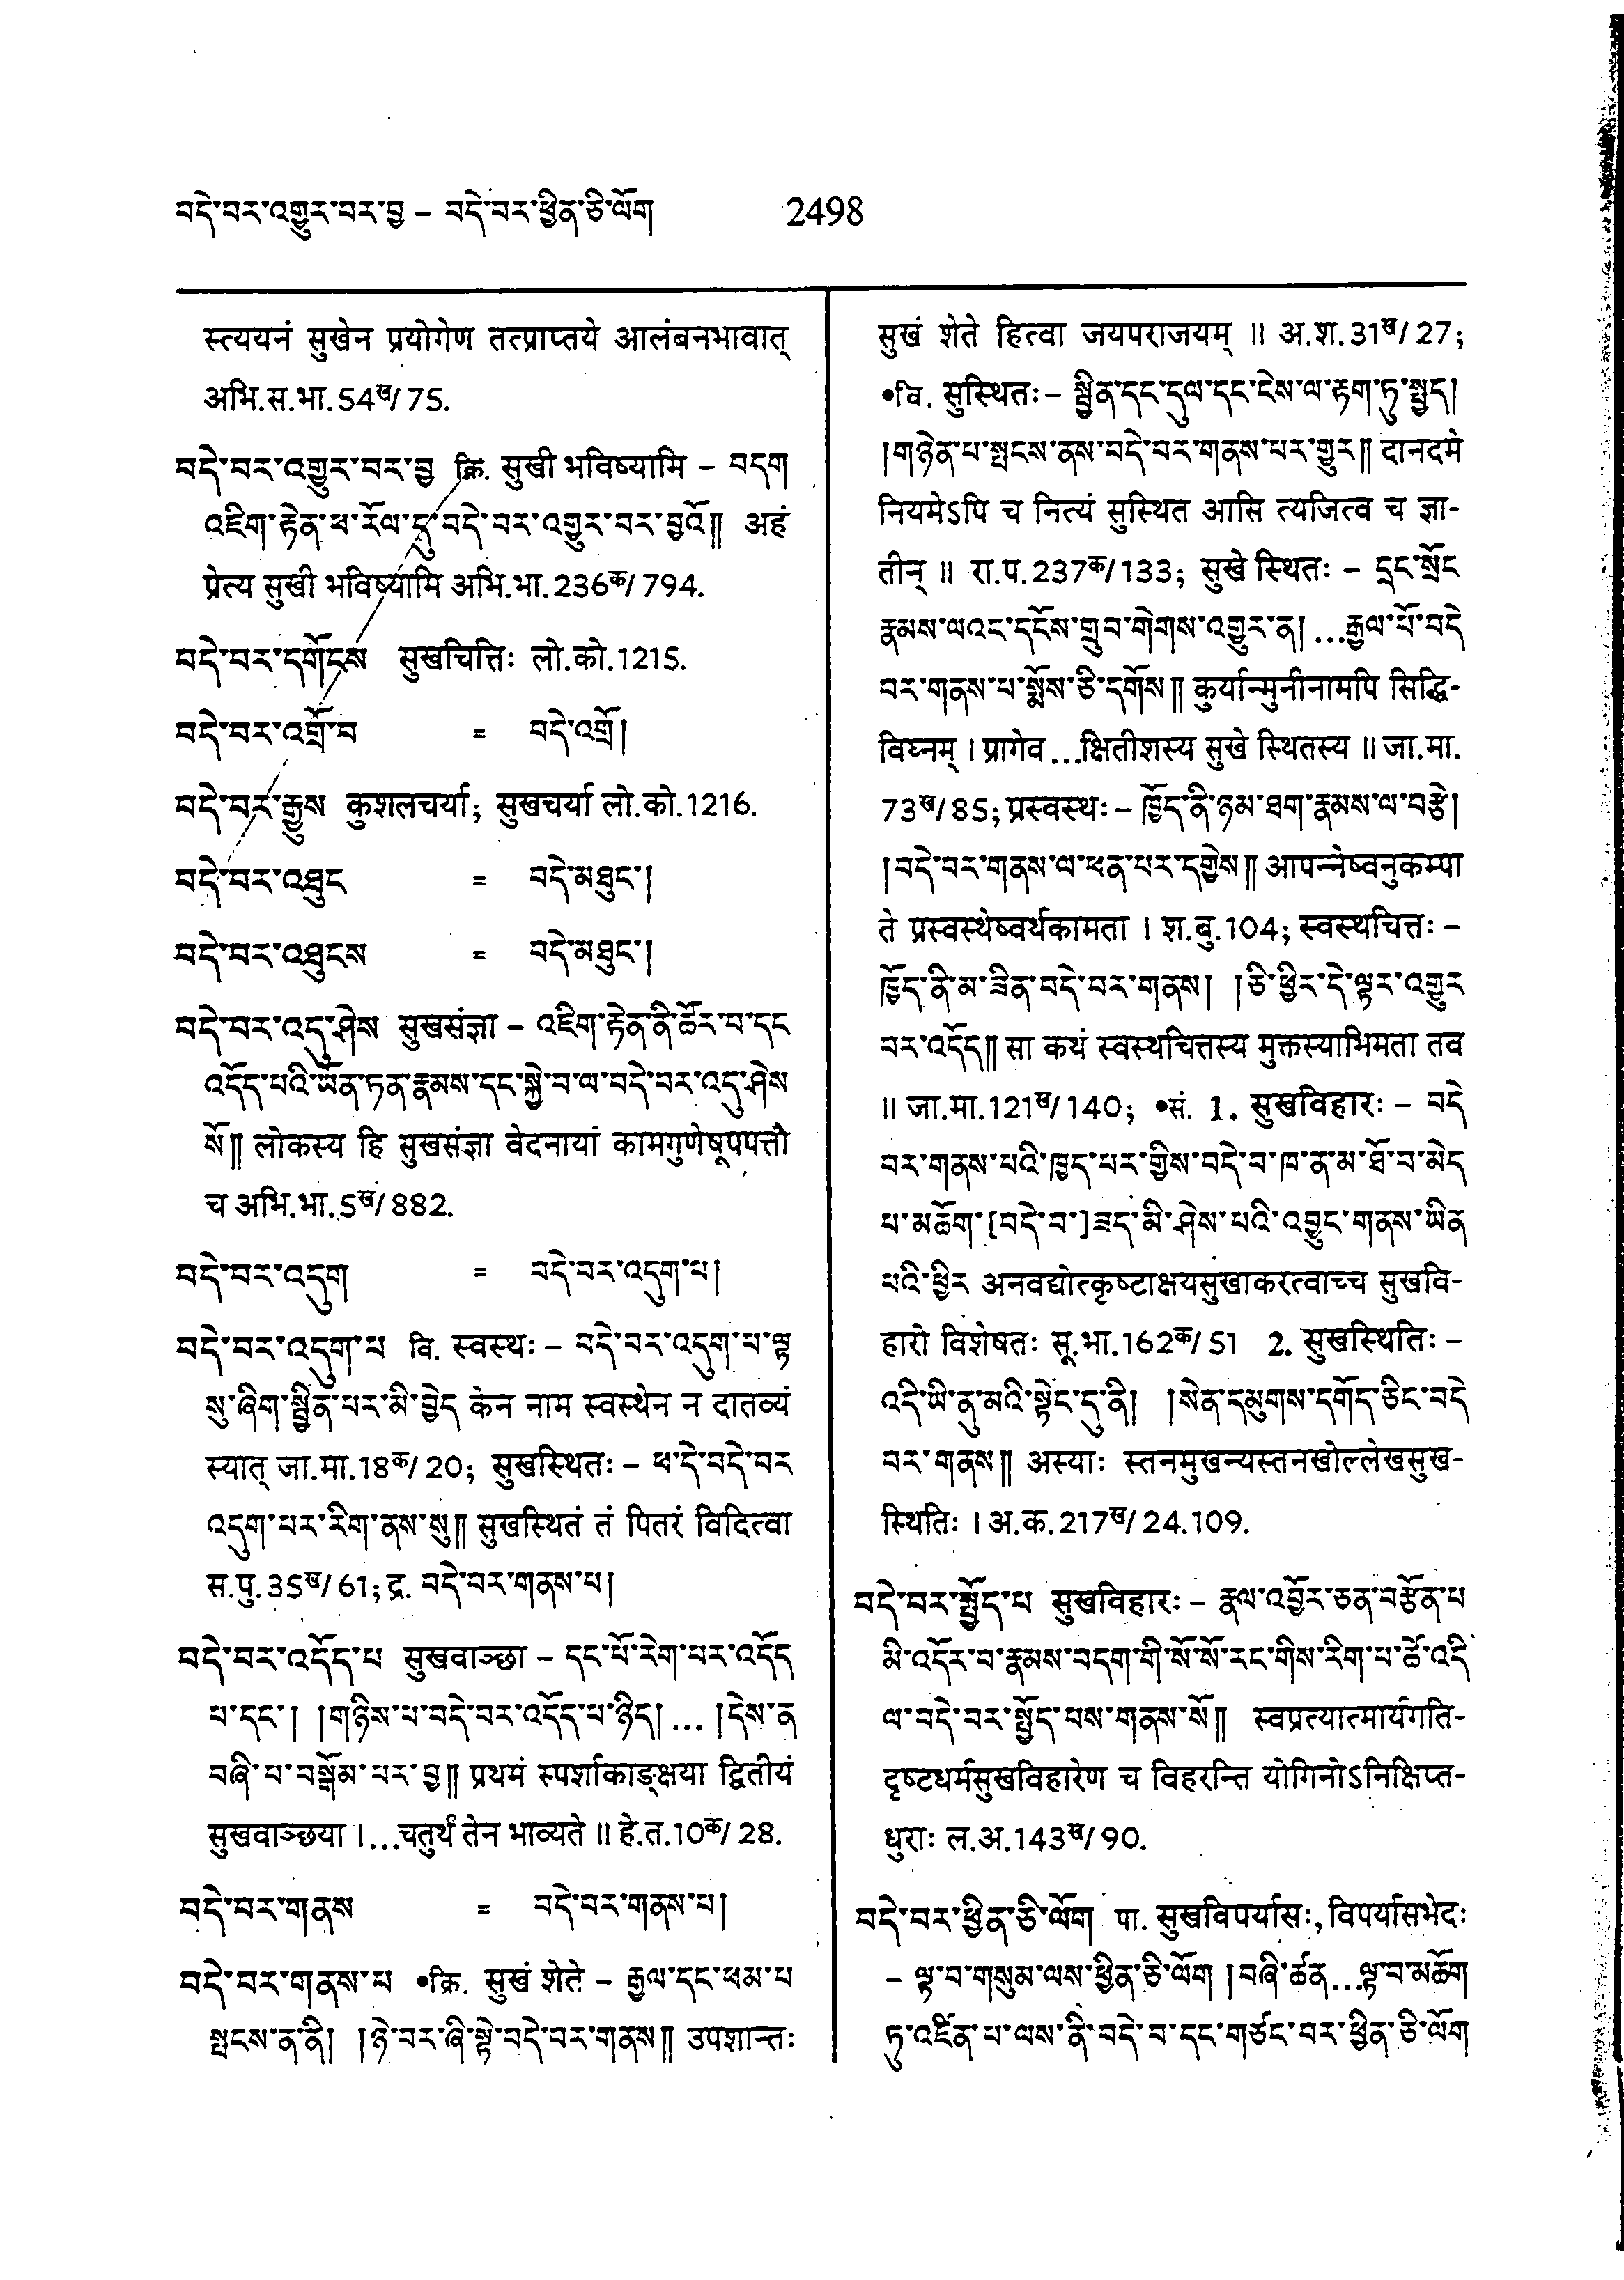 བདེ་བར་འགྱུར་བར་བྱ – བདེ་བར་ཕྱིན་ཅི་ལོག 2498
स्त्ययनं सुखेन प्रयोगेण तत्प्राप्तये आलंबनभावात्
अभि.स.भा.54ख/75.
བདེ་བར་འགྱུར་བར་བྱ क्रि. सुखी भविष्यामि – བདག
འཇིག་རྟེན་ཕ་རོལ་དུ་བདེ་བར་འགྱུར་བར་བྱའོ༎ अहं
प्रेत्य सुखी भविष्यामि अभि.भा.236क/794.
བདེ་བར་དགོངས सुखचित्तिः लो.को.1215.
བདེ་བར་འགྲོ་བ = བདེ་འགྲོ།
བདེ་བར་རྒྱུས कुशलचर्या; सुखचर्या लो.को.1216.
བདེ་བར་འཐུང = བདེ་མཐུང་།
བདེ་བར་འཐུངས = བདེ་མཐུང་།
བདེ་བར་འདུ་ཤེས सुखसंज्ञा – འཇིག་རྟེན་ནི་ཚོར་བ་དང
འདོད་པའི་ཡོན་ཏན་རྣམས་དང་སྐྱེ་བ་ལ་བདེ་བར་འདུ་ཤེས
སོ༎ लोकस्य हि सुखसंज्ञा वेदनायां कामगुणेषूपपत्तौ
च अभि.भा.5ख/882.
བདེ་བར་འདུག = བདེ་བར་འདུག་པ།
བདེ་བར་འདུག་པ वि. स्वस्थः – བདེ་བར་འདུག་པ་ལྟ
སུ་ཞིག་སྦྱིན་པར་མི་བྱེད केन नाम स्वस्थेन न दातव्यं
स्यात् जा.मा.18क/20; सुखस्थितः – ཕ་དེ་བདེ་བར
འདུག་པར་རིག་ནས་སུ༎ सुखस्थितं तं पितरं विदित्वा
स.पु.35ख/61; द्र. བདེ་བར་གནས་པ།
བདེ་བར་འདོད་པ सुखवाञ्छा – དང་པོ་རེག་པར་འདོད
པ་དང་། །གཉིས་པ་བདེ་བར་འདོད་པ་ཉིད།... །དེས་ན
བཞི་པ་བསྒོམ་པར་བྱ༎ प्रथमं स्पर्शाकाङ्क्षया द्वितीयं
सुखवाञ्छया ।...चतुर्थं तेन भाव्यते ॥ हे.त.10क/28.
བདེ་བར་གནས = བདེ་བར་གནས་པ།
བདེ་བར་གནས་པ •क्रि. सुखं शेते – རྒྱལ་དང་ཕམ་པ
སྤངས་ན་ནི། །ཉེ་བར་ཞི་སྟེ་བདེ་བར་གནས༎ उपशान्तः
सुखं शेते हित्वा जयपराजयम् ॥ अ.श.31ख/27;
•वि. सुस्थितः – སྦྱིན་དང་དུལ་དང་ངེས་ལ་རྟག་ཏུ་སྤྱད།
།གཉེན་པ་སྤངས་ནས་བདེ་བར་གནས་པར་གྱུར༎ दानदमे
नियमेऽपि च नित्यं सुस्थित आसि त्यजित्व च ज्ञा-
तीन् ॥ रा.प.237क/133; सुखे स्थितः – དྲང་སྲོང
རྣམས་ལའང་དངོས་གྲུབ་གེགས་འགྱུར་ན། ...རྒྱལ་པོ་བདེ
བར་གནས་པ་སྨོས་ཅི་དགོས༎ कुर्यान्मुनीनामपि सिद्धि-
विघ्नम् । प्रागेव ...क्षितीशस्य सुखे स्थितस्य ॥ जा.मा.
73ख/85; प्रस्वस्थः – ཁྱོད་ནི་ཉམ་ཐག་རྣམས་ལ་བརྩེ།
།བདེ་བར་གནས་ལ་ཕན་པར་དགྱེས༎ आपन्नेष्वनुकम्पा
ते प्रस्वस्थेष्वर्थकामता । श.बु.104; स्वस्थचित्तः –
ཁྱོད་ནི་མ་ཟིན་བདེ་བར་གནས། །ཅི་ཕྱིར་དེ་ལྟར་འགྱུར
བར་འདོད༎ सा कथं स्वस्थचित्तस्य मुक्तस्याभिमता तव
॥ जा.मा.121ख/140; •सं. 1. सुखविहारः – བདེ
བར་གནས་པའི་ཁྱད་པར་གྱིས་བདེ་བ་ཁ་ན་མ་ཐོ་བ་མེད
པ་མཆོག་[བདེ་བ་]ཟད་མི་ཤེས་པའི་འབྱུང་གནས་ཡིན
པའི་ཕྱིར अनवद्योत्कृष्टाक्षयसुखाकरत्वाच्च सुखवि-
हारो विशेषतः सू.भा.162क/51 2. सुखस्थितिः –
འདི་ཡི་ནུ་མའི་སྟེང་དུ་ནི། །སེན་དམུགས་དགོད་ཅིང་བདེ
བར་གནས༎ अस्याः स्तनमुखन्यस्तनखोल्लेखसुख-
स्थितिः । अ.क.217ख/24.109.
བདེ་བར་སྤྱོད་པ सुखविहारः – རྣལ་འབྱོར་ཅན་བརྩོན་པ
མི་འདོར་བ་རྣམས་བདག་གི་སོ་སོ་རང་གིས་རིག་པ་ཚེ་འདི
ལ་བདེ་བར་སྤྱོད་པས་གནས་སོ༎ स्वप्रत्यात्मार्यगति-
दृष्टधर्मसुखविहारेण च विहरन्ति योगिनोऽनिक्षिप्त-
धुराः ल.अ.143ख/90.
བདེ་བར་ཕྱིན་ཅི་ལོག पा. सुखविपर्यासः, विपर्यासभेदः
– ལྟ་བ་གསུམ་ལས་ཕྱིན་ཅི་ལོག །བཞི་ཚན...ལྟ་བ་མཆོག
ཏུ་འཛིན་པ་ལས་ནི་བདེ་བ་དང་གཙང་བར་ཕྱིན་ཅི་ལོག